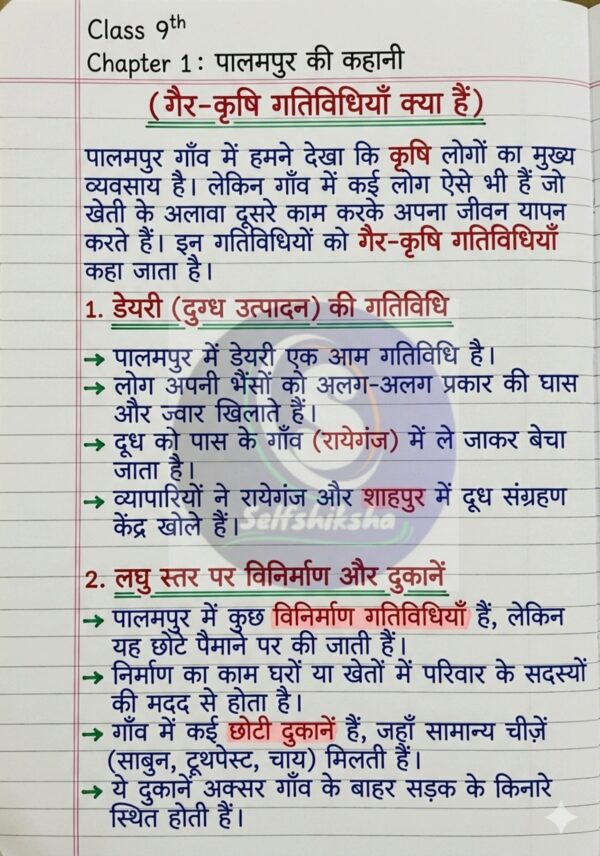 Class 9th
Chapter 1: पालमपुर की कहानी
(गैर-कृषि गतिविधियाँ क्या हैं)
पालमपुर गाँव में हमने देखा कि कृषि लोगों का मुख्य
व्यवसाय है। लेकिन गाँव में कई लोग ऐसे भी हैं जो
खेती के अलावा दूसरे काम करके अपना जीवन यापन
करते हैं। इन गतिविधियों को गैर-कृषि गतिविधियाँ
कहा जाता है।
1. डेयरी (दुग्ध उत्पादन) की गतिविधि
→ पालमपुर में डेयरी एक आम गतिविधि है।
→ लोग अपनी भैंसों को अलग-अलग प्रकार की घास
और ज्वार खिलाते हैं।
→ दूध को पास के गाँव (रायेगंज) में ले जाकर बेचा
जाता है।
→ व्यापारियों ने रायेगंज और शाहपुर में दूध संग्रहण
केंद्र खोले हैं।
Selfshiksha
2. लघु स्तर पर विनिर्माण और दुकानें
→ पालमपुर में कुछ विनिर्माण गतिविधियाँ हैं, लेकिन
यह छोटे पैमाने पर की जाती हैं।
→ निर्माण का काम घरों या खेतों में परिवार के सदस्यों
की मदद से होता है।
→ गाँव में कई छोटी दुकानें हैं, जहाँ सामान्य चीज़ें
(साबुन, टूथपेस्ट, चाय) मिलती हैं।
→ ये दुकानें अक्सर गाँव के बाहर सड़क के किनारे
स्थित होती हैं।